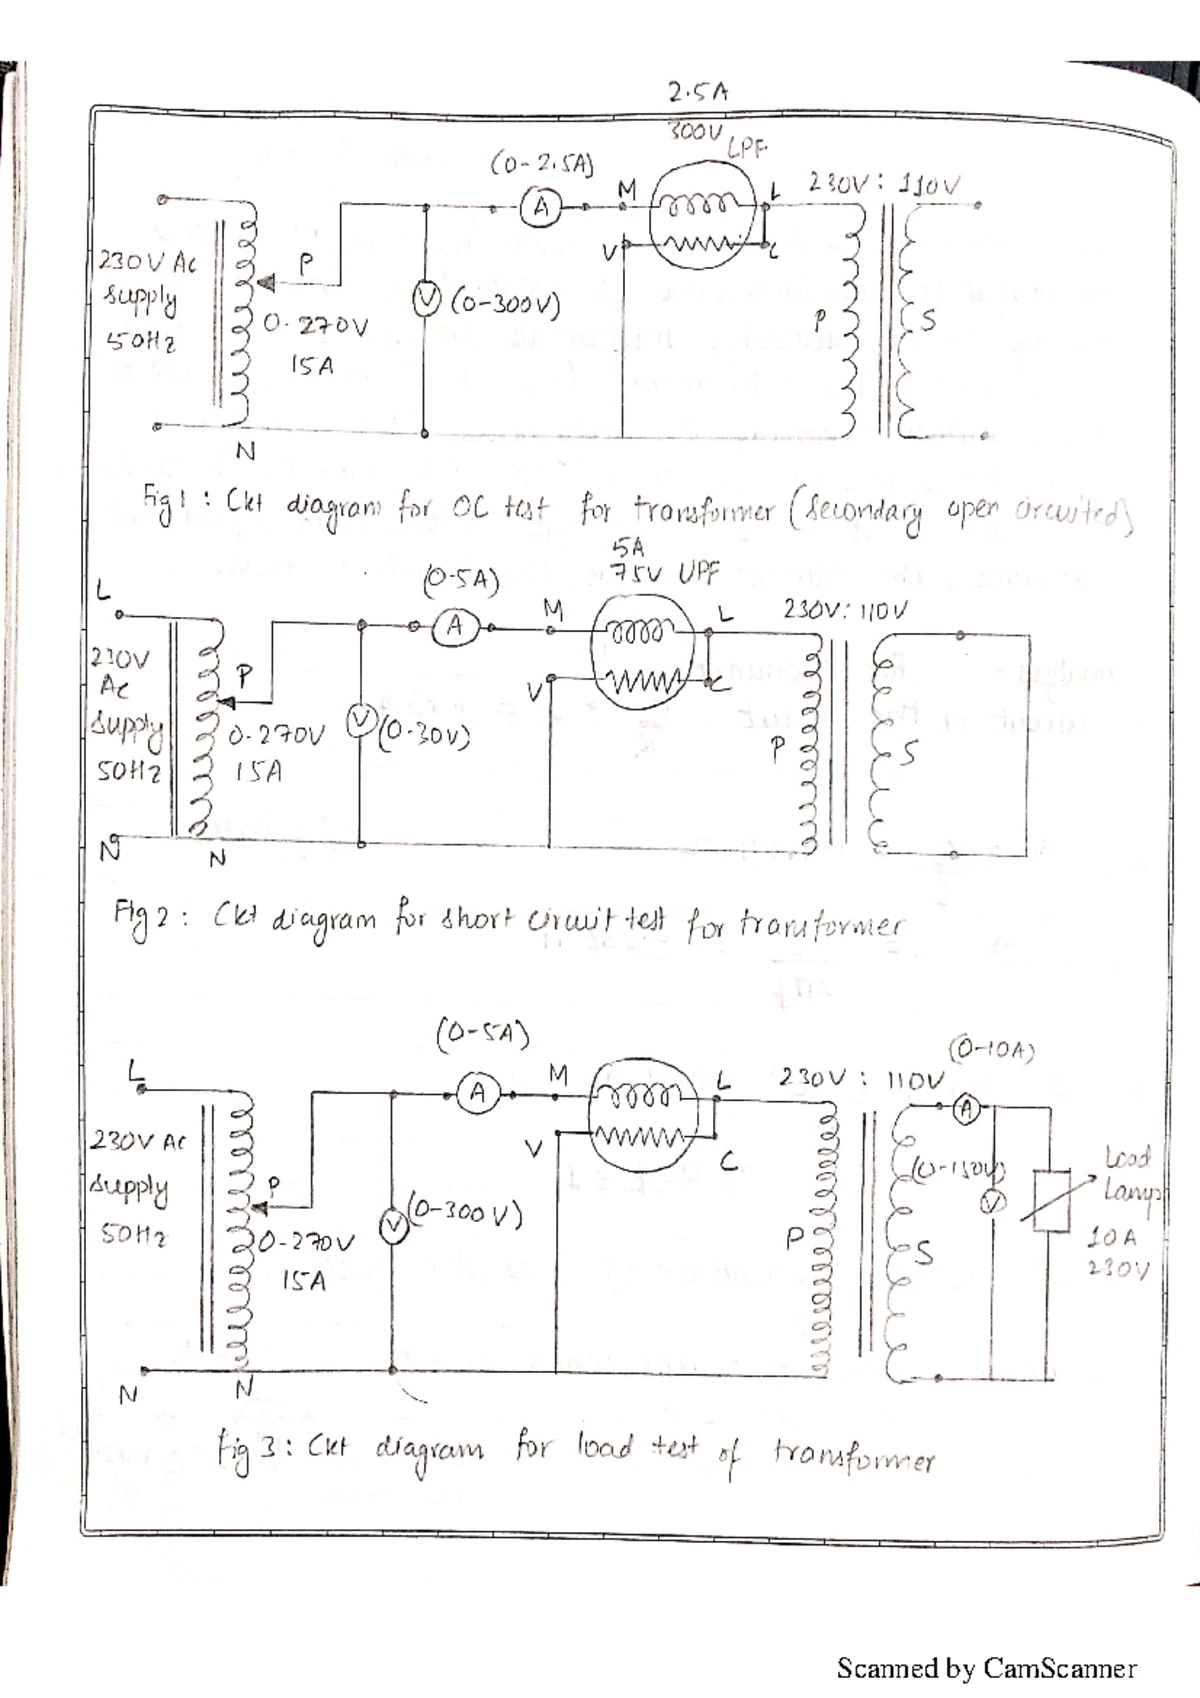 2.5A
300V LPF
(0-2.5A)
M
L
230V : 110V
V
C
230V AC
supply
50Hz
P
0-270V
15A
V (0-300V)
A
P
S
N
Fig 1 : Ckt diagram for OC test for transformer (Secondary open circuited)
5A
75V UPF
(0-5A)
L
M
L
230V : 110V
A
230V
AC
supply
50Hz
P
0-270V
15A
V (0-30V)
V
C
P
S
N
N
Fig 2 : Ckt diagram for short circuit test for transformer
(0-5A)
(0-10A)
L
A
M
L
230V : 110V
A
230V AC
supply
50Hz
P
0-270V
15A
V (0-300V)
V
C
P
S
(0-150V)
V
Load
Lamp
10A
230V
N
N
fig 3 : Ckt diagram for load test of transformer
Scanned by CamScanner